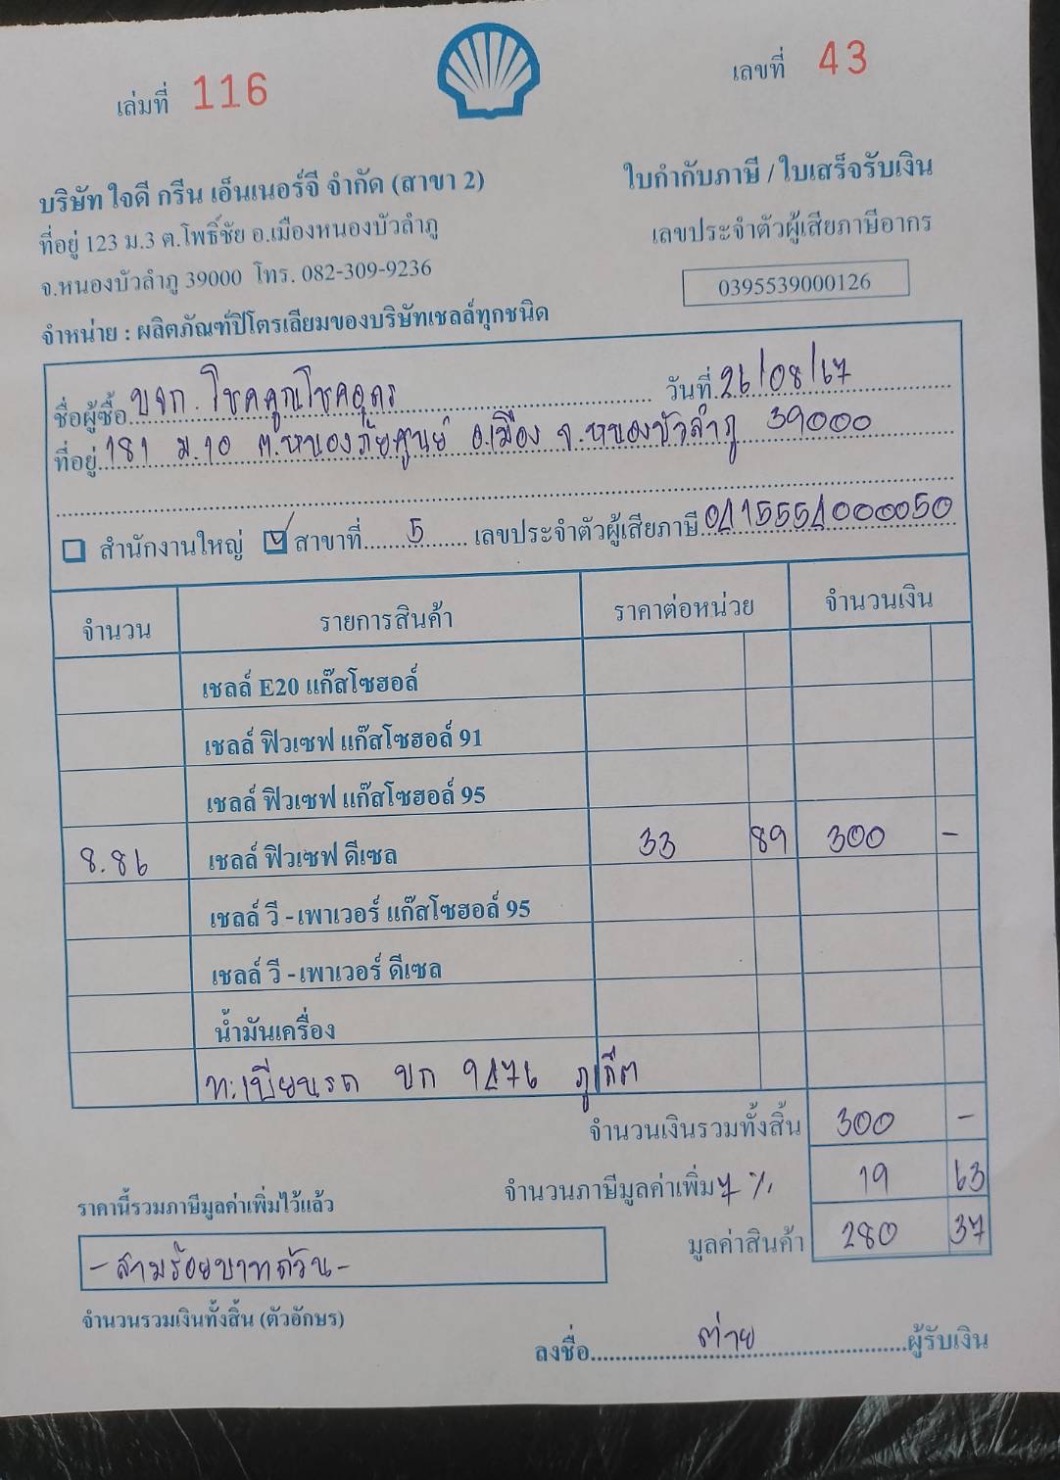 เล่มที่ 116
เลขที่ 43
บริษัท ใจดี กรีน เอ็นเนอร์จี จำกัด (สาขา 2)
ใบกำกับภาษี / ใบเสร็จรับเงิน
ที่อยู่ 123 ม.3 ต.โพธิ์ชัย อ.เมืองหนองบัวลำภู
เลขประจำตัวผู้เสียภาษีอากร
จ.หนองบัวลำภู 39000 โทร. 082-309-9236
0395539000126
จำหน่าย : ผลิตภัณฑ์ปิโตรเลียมของบริษัทเชลล์ทุกชนิด
ชื่อผู้ซื้อ บจก. โชคคูณโชคอุดร วันที่ 26/08/67
ที่อยู่ 181 ม.10 ต.หนองภัยศูนย์ อ.เมือง จ.หนองบัวลำภู 39000
สำนักงานใหญ่ สาขาที่ 5 เลขประจำตัวผู้เสียภาษี 0415551000050
จำนวน รายการสินค้า ราคาต่อหน่วย จำนวนเงิน
เชลล์ E20 แก๊สโซฮอล์
เชลล์ ฟิวเซฟ แก๊สโซฮอล์ 91
เชลล์ ฟิวเซฟ แก๊สโซฮอล์ 95
8.86 เชลล์ ฟิวเซฟ ดีเซล 33 89 300 -
เชลล์ วี - เพาเวอร์ แก๊สโซฮอล์ 95
เชลล์ วี - เพาเวอร์ ดีเซล
น้ำมันเครื่อง
ทะเบียนรถ บก 9476 ภูเก็ต
จำนวนเงินรวมทั้งสิ้น 300 -
ราคานี้รวมภาษีมูลค่าเพิ่มไว้แล้ว
จำนวนภาษีมูลค่าเพิ่ม 7 % 19 63
- สามร้อยบาทถ้วน -
มูลค่าสินค้า 280 37
จำนวนรวมเงินทั้งสิ้น (ตัวอักษร)
ลงชื่อ ต่าย ผู้รับเงิน